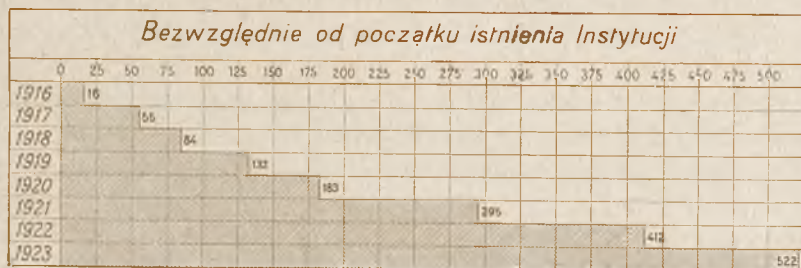 Bezwzględnie od początku istnienia Instytucji
0 25 50 75 100 125 150 175 200 225 250 275 300 325 350 375 400 425 450 475 500
1916 16
1917 55
1918 84
1919 132
1920 183
1921 295
1922 412
1923 522